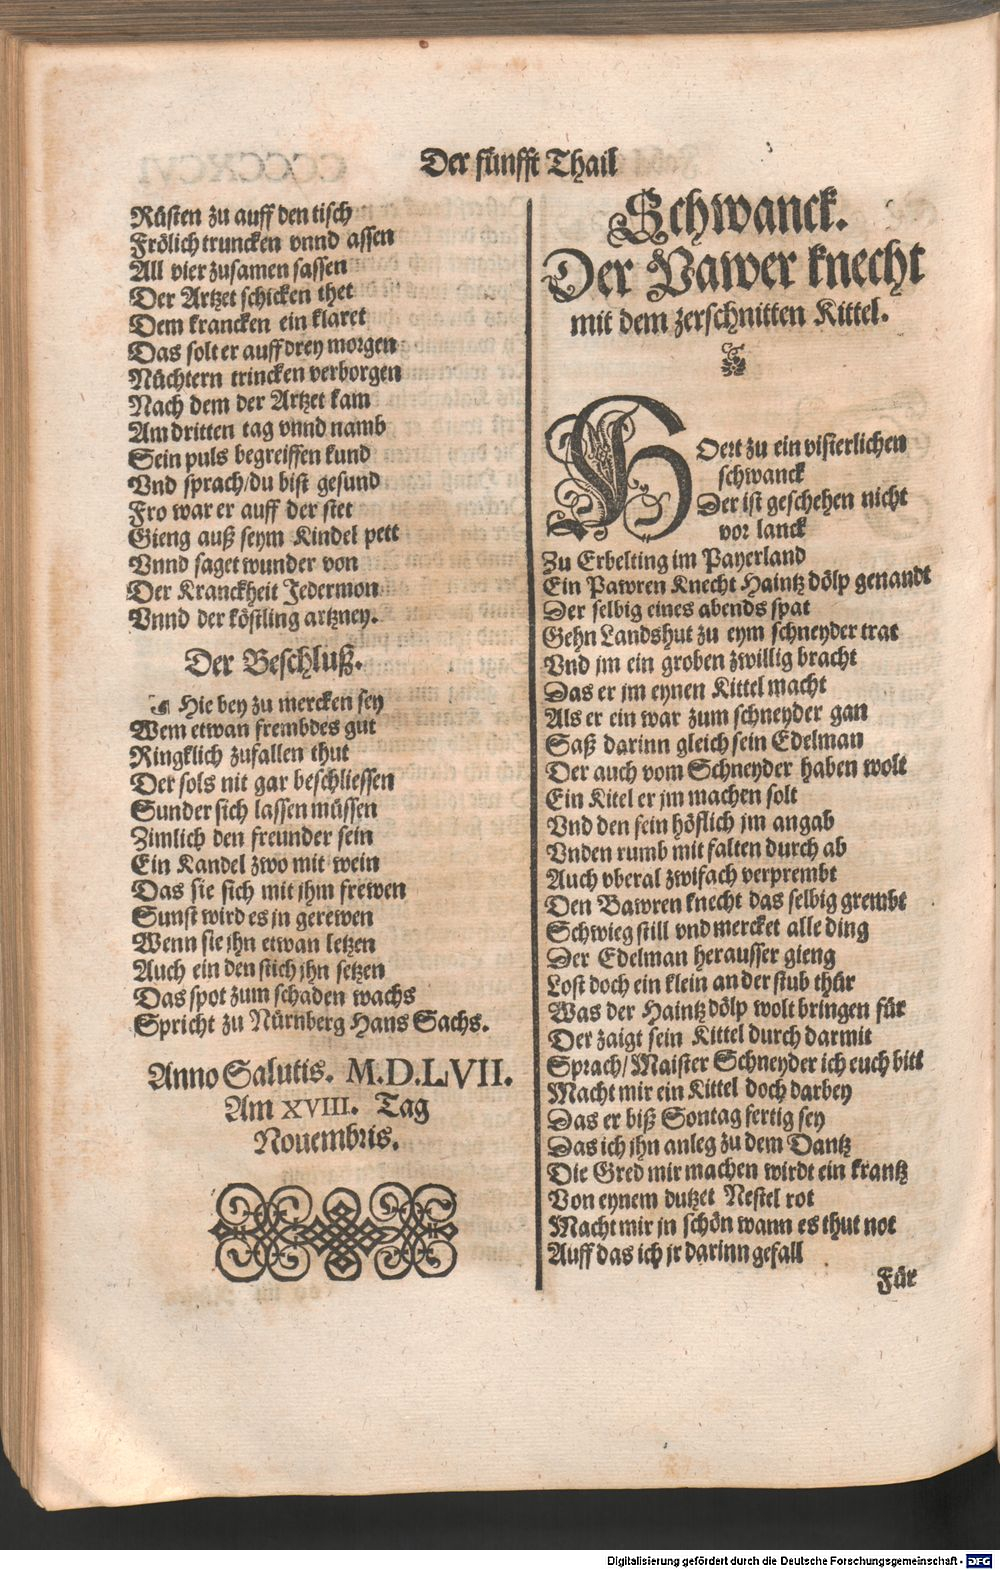 Der fünfft Thail
Rüsten zu auff den tisch
Frölich truncken vnnd assen
All vier zusamen sassen
Der Artzet schicken thet
Dem krancken ein klaret
Das solt er auff drey morgen
Nüchtern trincken verborgen
Nach dem der Artzet kam
Am dritten tag vnnd namb
Sein puls begreiffen kund
Vnd sprach/du bist gesund
Fro war er auff der stet
Gieng auß seym Kindel pett
Vnnd saget wunder von
Der Kranckheit Jedermon
Vnnd der köstling artzney.
Der Beschluß.
Hie bey zu mercken sey
Wem etwan frembdes gut
Ringklich zufallen thut
Der sols nit gar beschliessen
Sunder sich lassen müssen
Zimlich den freunder sein
Ein Kandel zwo mit wein
Das sie sich mit jhm frewen
Sunst wird es jn gerewen
Wenn sie jhn etwan letzen
Auch ein den stich jhn setzen
Das spot zum schaden wachs
Spricht zu Nürnberg Hans Sachs.
Anno Salutis. M.D.LVII.
Am XVIII. Tag
Nouembris.
Schwanck.
Der Pawer knecht
mit dem zerschnitten Kittel.
HOert zu ein visierlichen
schwanck
Der ist geschehen nicht
vor lanck
Zu Erbelting im Payerland
Ein Pawren Knecht Haintz dölp genandt
Der selbig eines abends spat
Gehn Landshut zu eym schneyder trat
Vnd jm ein groben zwillig bracht
Das er jm eynen Kittel macht
Als er ein war zum schneyder gan
Saß darinn gleich sein Edelman
Der auch vom Schneyder haben wolt
Ein Kitel er jm machen solt
Vnd den fein höflich jm angab
Vnden rumb mit falten durch ab
Auch vberal zwifach verprembt
Den Bawren knecht das selbig grembt
Schwieg still vnd mercket alle ding
Der Edelman herausser gieng
Lost doch ein klein an der stub thür
Was der Haintz dölp wolt bringen für
Der zaigt sein Kittel durch darmit
Sprach/Maister Schneyder ich euch bitt
Macht mir ein Kittel doch darbey
Das er biß Sontag fertig sey
Das ich jhn anleg zu dem Dantz
Die Gred mir machen wirdt ein krantz
Von eynem dutzet Nestel rot
Macht mir jn schön wann es thut not
Auff das ich jr darinn gefall
Für
Digitalisierung gefördert durch die Deutsche Forschungsgemeinschaft - DFG